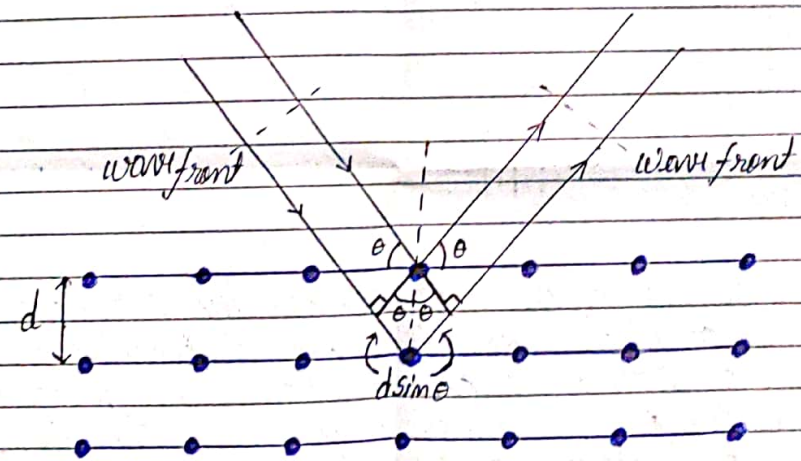 wavefront
wavefront
θ θ
d
θ θ
dsinθ